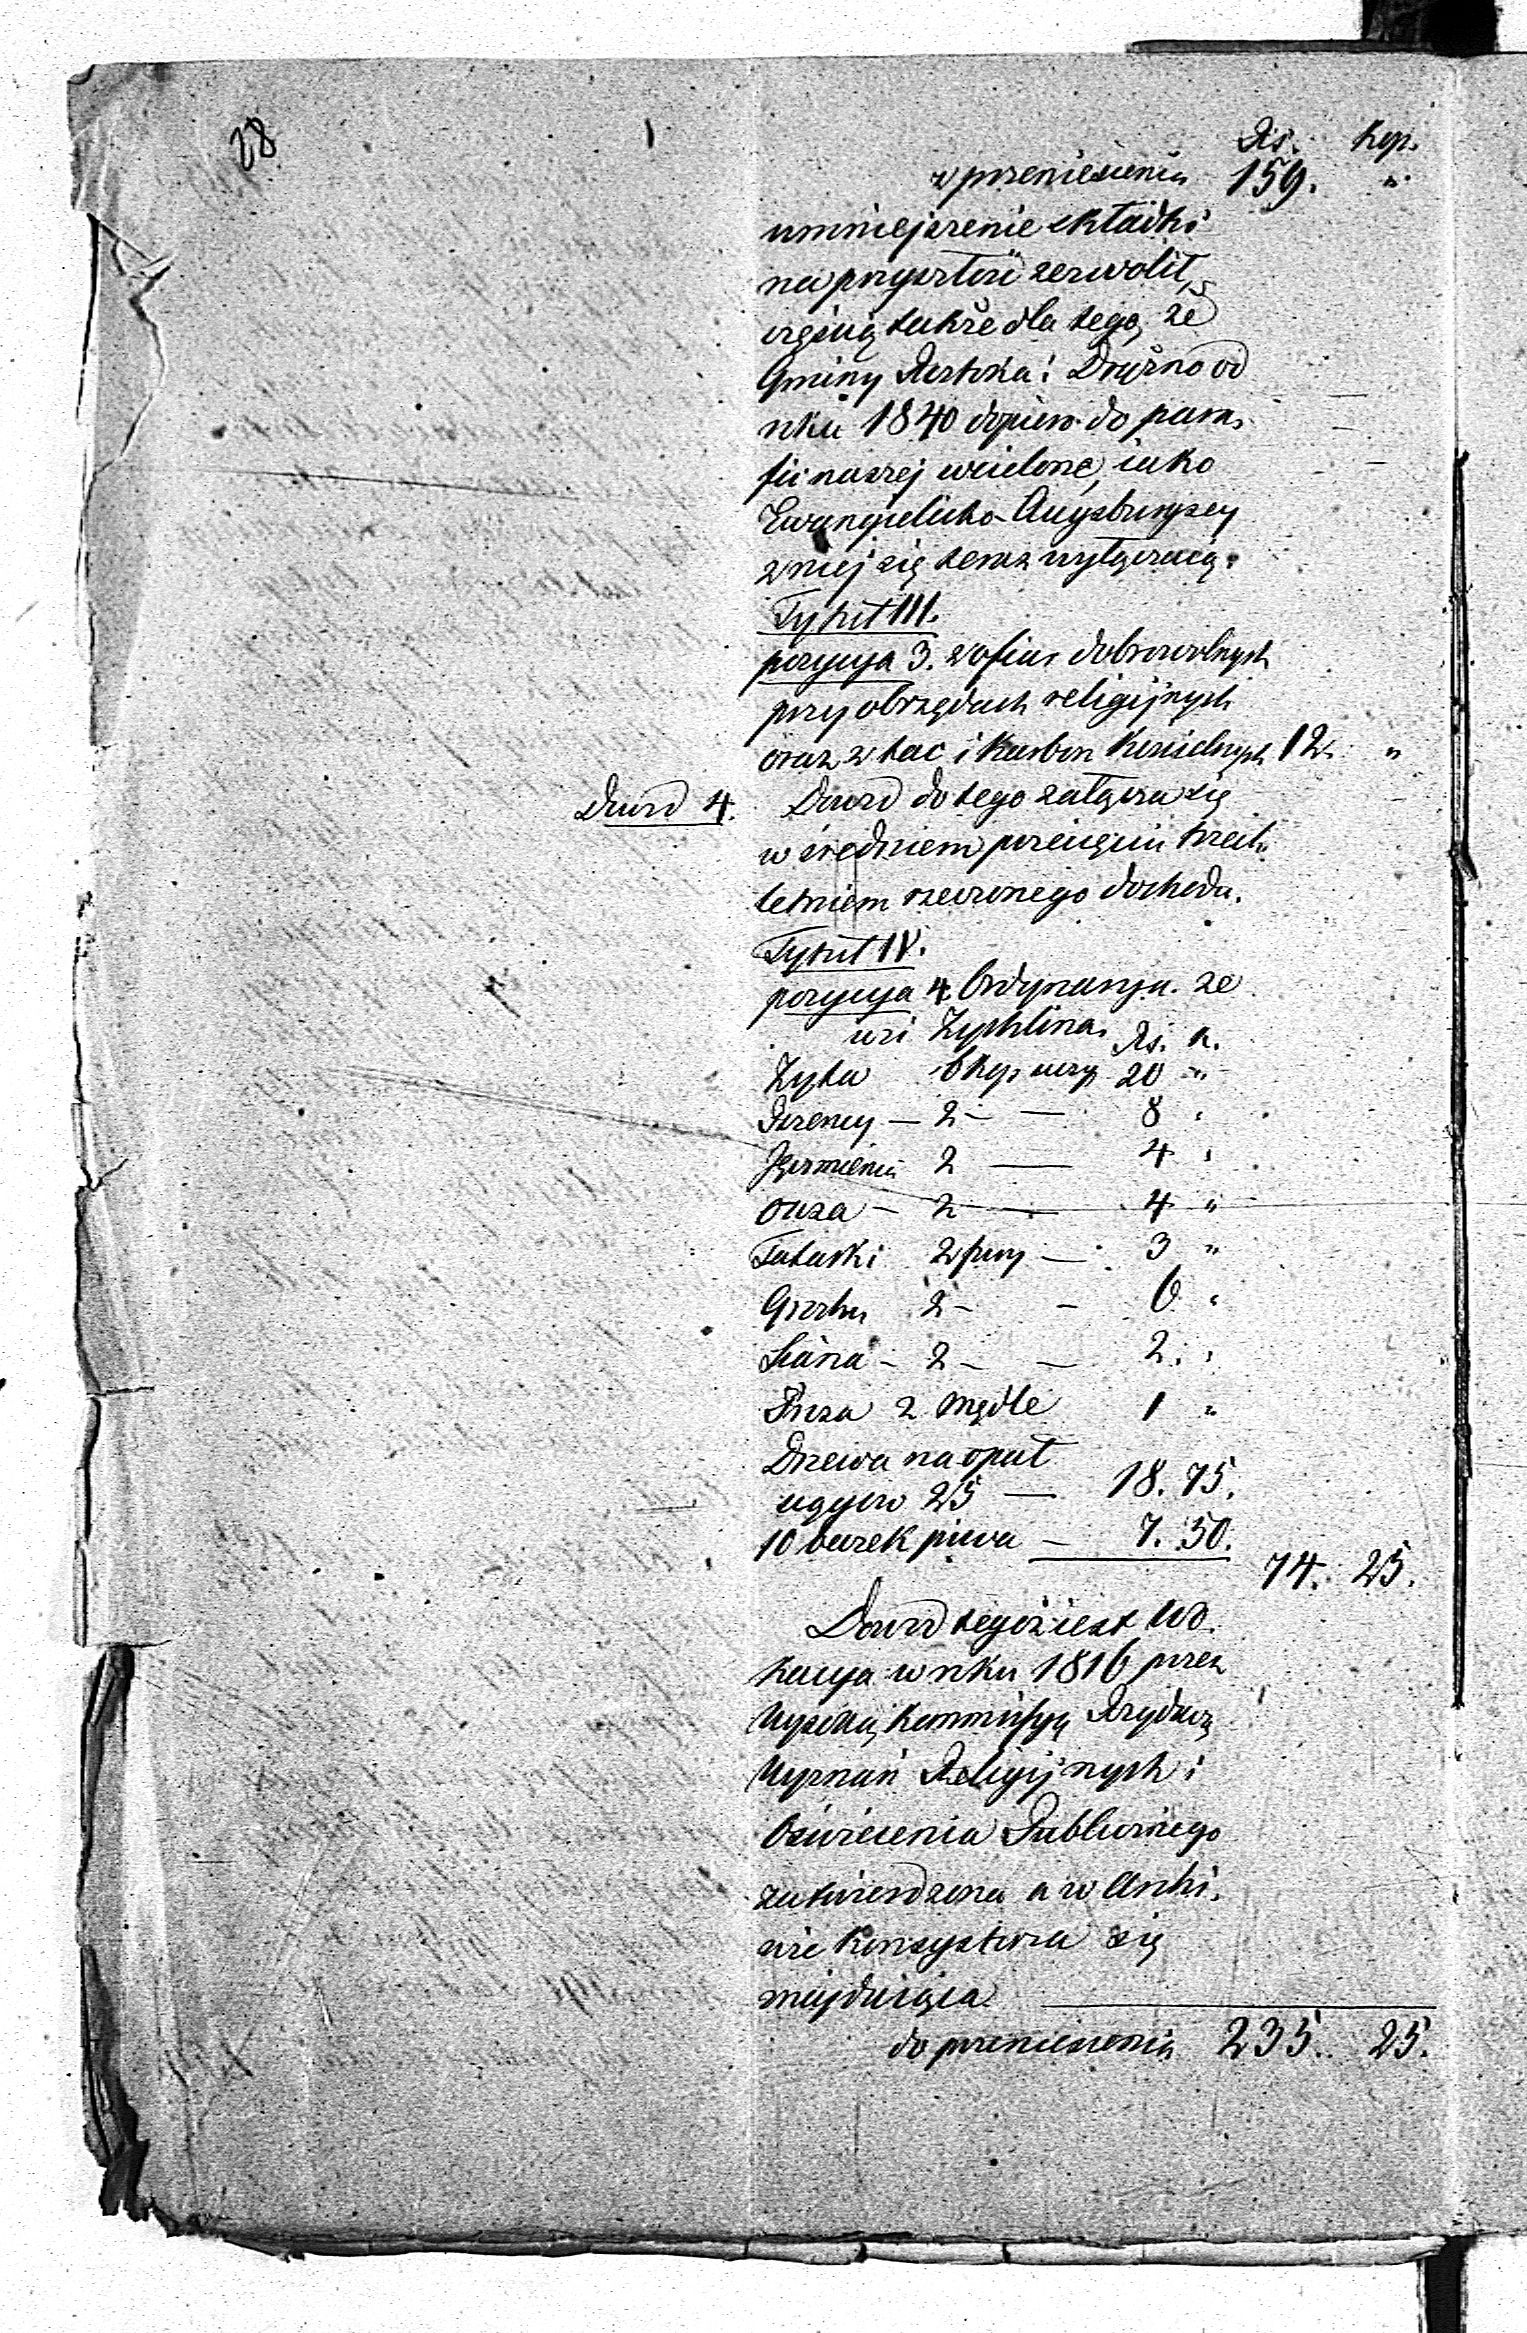 28
Rs. Kop.
z przeniesienia 159. "
umniejszenie składki
na przyszłość zezwolił,
częścią także dla tego, że
Gminy i Drężno od
roku 1840 dopiero do para,
fii naszej wcielone, iako
Ewangielicko-Augsburgscy
z niej się teraz wyłączaią.
Tytuł III.
pozycya 3. z ofiar dobrowolnych
przy obrzędach religijnych
oraz z tac i karbon kościelnych 12 "
Dowód 4. Dowód do tego załącza się
w średniem przecięciu trzech
letniem rzeczonego dochodu.
Tytuł IV.
pozycya 4. Ordynarya ze
wsi Żychlina. Rs. k.
Żyta 6 kop czy 20 "
Pszenicy — 2 — — 8 "
Jęczmienia 2 — 4 "
Owsa — 2 — — 4 "
Tatarki 2 — 3 "
Grochu 2 — — 6 "
Siana — 2 — — 2. "
Prosa 2 mędle 1 "
Drzewa na opał
25 — 18. 75.
10 beczek piwa — 7. 50.
74. 25.
Dowód tegoż iest Wo.
kacya w roku 1816 przez
Wysoką Kommissyą Rządową
Wyznań Religijnych i
Oświecenia Publicznego
zatwierdzona a w Archi,
wie Konsystorza się
znajduiąca
do przeniesienia 235. 25.